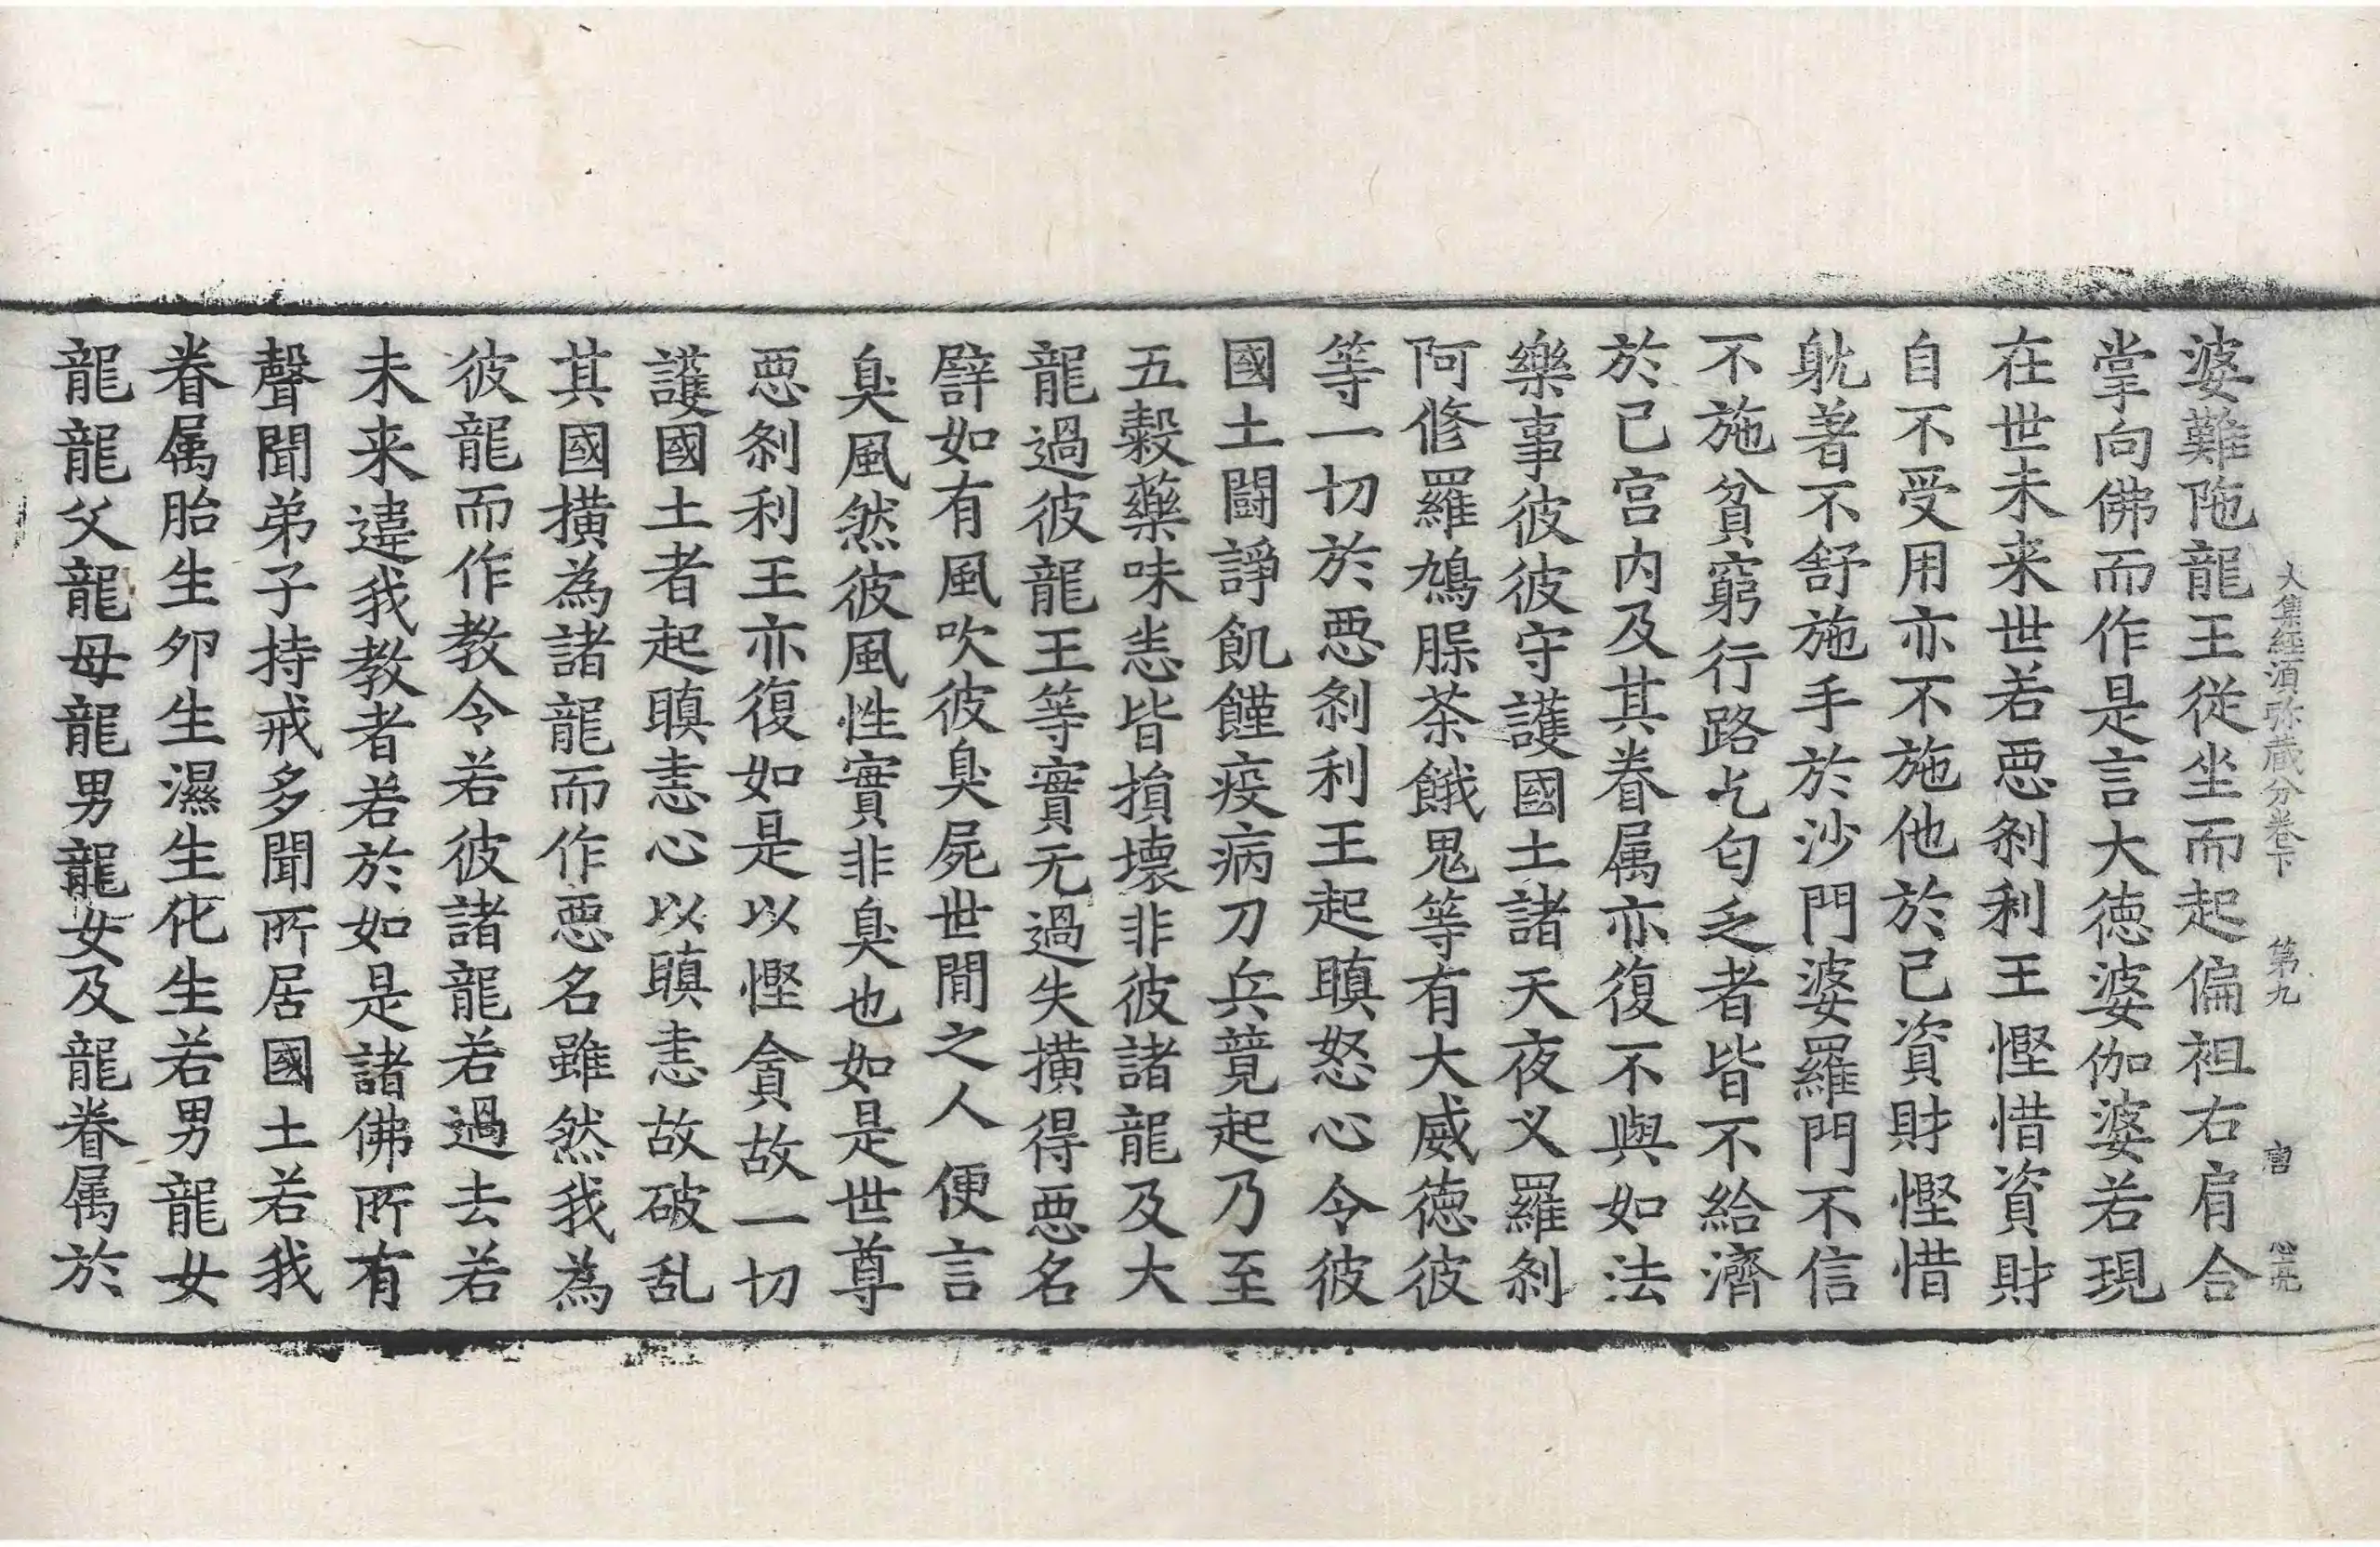 大集經湏弥蔵分卷下 第九 唐
婆難陁龍王從坐而起偏袒右肩合
掌向佛而作是言大徳婆伽婆若現
在世未来世若恶刹利王慳惜資財
自不受用亦不施他於己資財慳惜
躭著不舒施手於沙門婆羅門不信
不施貧窮行路乞匂乏者皆不給濟
於己宫内及其眷属亦復不與如法
樂事彼彼守護國土諸天夜义羅刹
阿修羅鳩脲茶餓鬼等有大威徳彼
等一切於恶刹利王起瞋怒心令彼
國土闘諍飢饉疫病刀兵竟起乃至
五穀藥味恙皆損壊非彼諸龍及大
龍過彼龍王等實无過失撗得恶名
譬如有風吹彼臭屍世間之人便言
臭風然彼風性實非臭也如是世尊
恶刹利王亦復如是以慳貪故一切
護國土者起瞋恚心以瞋恚故破乱
其國撗為諸龍而作恶名雖然我為
彼龍而作教令若彼諸龍若過去若
未来違我教者若於如是諸佛所有
聲聞弟子持戒多聞所居國土若我
眷属胎生夘生濕生化生若男龍女
龍龍父龍母龍男龍女及龍眷属於